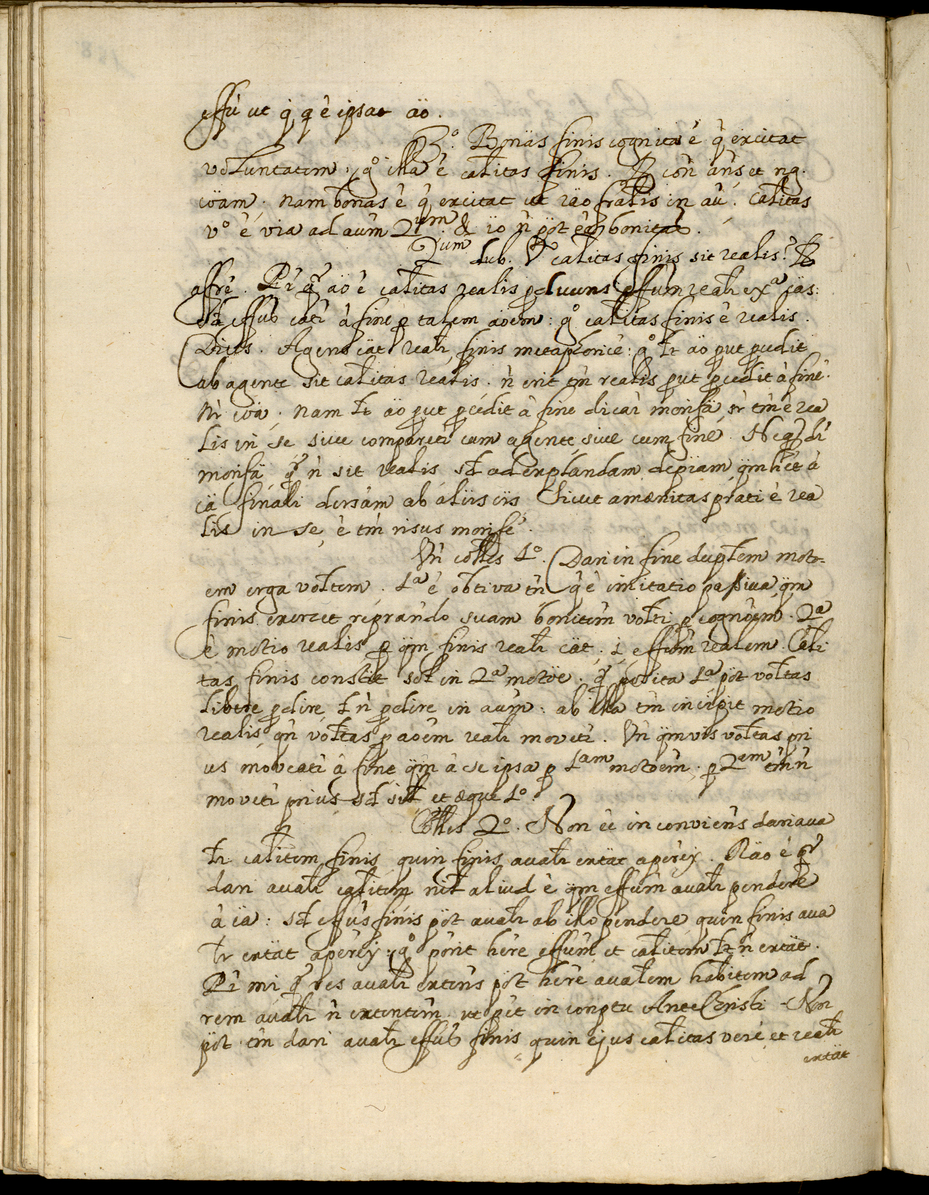 effũ ut q̃ q ẽ ipsae ão.
3.º Bonĩas finis cognita ẽ q̃ excitat
voluntatem; gº illa ẽ calitas finis. R/ cõñ ãñs et ng.
cõam. nam bonas ẽ q̃ excitat ut rão frãlis in aũ. calitas
vº ẽ via ad aũm 2um & iõ ñ põt eẽ bonitas.
2um dub. Vr calitas finis sit realis? R/
affrẽ. Pr̃ qr ão ẽ calitas realis pducens effum reali exª cãs:
sed effũs catr à fine p talem ãõem: gº calitas finis ẽ realis.
Dices. Agens cãt realr, finis metaphoricẽ: gº lt ão put pcedit
ab agente sit calitas realis. ñ erit tm̃ realis put pcedit à fine.
Nr cõa. nam lt ão put pcedit à fine dicar morifã, sr tm̃ ẽ rea
lis in se sive comparetr cum agente, sive cum fine. Neq; dr
morifã qr ñ sit realis sed ad explandam depiam qm̃ hẽt à
cã finali dirsam ab aliis cĩs. Sicut amænitas prati ẽ rea
lis in se, ẽ tm̃ risus morifẽ
Vñ colles 1.º Dari in fine duplem moto-
em erga voltem. 1ª ẽ obtiva tñ q̃ ẽ imitatio passiva qm̃
finis exercet reprãndo suam bonitm̃ volti p cognõem. 2ª
ẽ motio realis p qm̃ finis realr cãt. i. effũm realem. Cali
tas finis constit sol in 2ª motõe. qr posita 1ª põt voltas
libere pdire l ñ pdire in aum: ab illa tm̃ incipit motio
realis qñ voltas p aõem reali movetr. Vñ qm̃vis voltas pri
us moveatr à fine qm̃ à se ipsa p 1am motõem, p 2em tm̃ ñ
movetr prius sed sil et æque 1.º
Colles 2.º Non ẽe inconviens dari ava
lr calitem finis quin finis avalr extãt apẽrej. Rão ẽ qr
dari avalr calitem nil aliud ẽ qm̃ effũm avalr pendere
à cã: sed effũs finis põt avalr ab illo pendere quin finis ava
lr extãt apẽrej, gº põrit hẽre effum et calitem lt ñ extãt.
Pr̃ mi qr res avalr extẽns põt hẽre avalem habitem ad
rem avalr ñ extentem. ut pãt in conptu Ante Christi. Non
põt tm̃ dari avalr effũs finis quin ejus calitas verè et realr
extãt